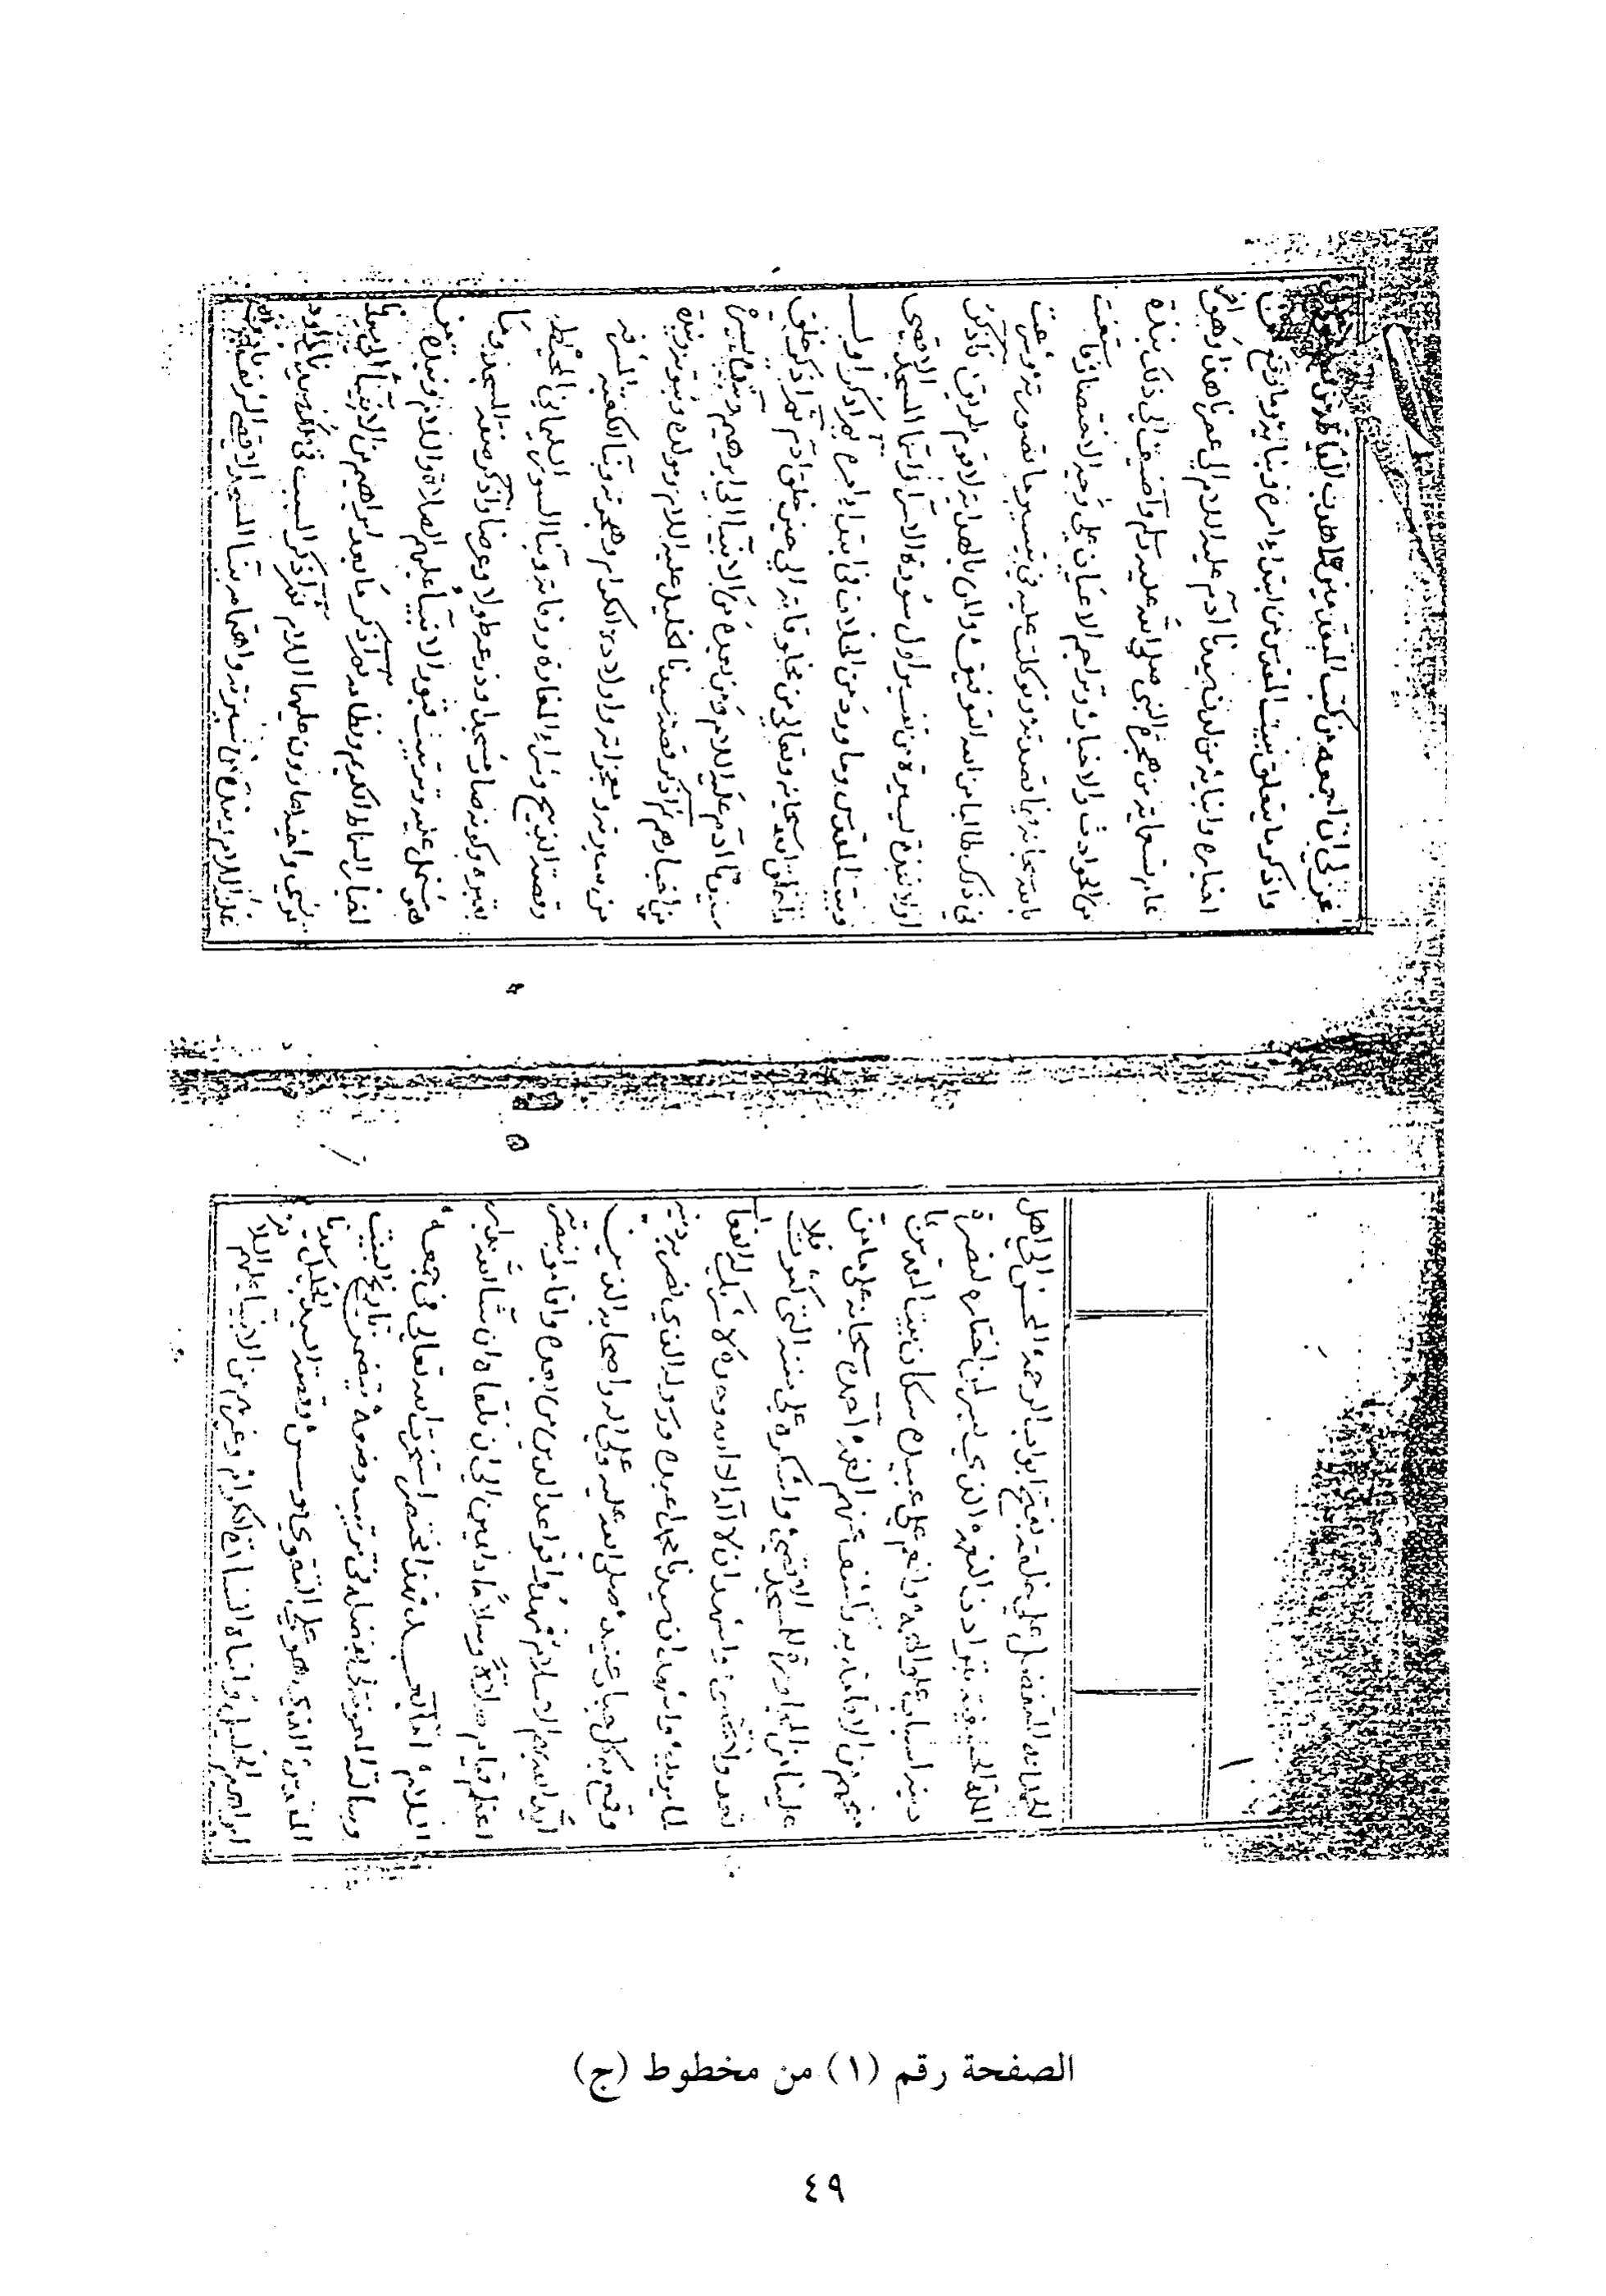 الحمد لله المتفضل على خلقه بفتح ابواب الرحمة المحسن الى اهل
الملة الحنيفية بترادف النعمة الذي يسر لمن اختاره لنصرة
دينه اسباب علو الهمة وانعم على عبيده سكان بيت المقدس بما
منحهم من الاقامة به وكشف عنهم الغمة احمده سبحانه على ما من
علينا من المجاورة للمسجد الاقصى واشكره على مننه التي كثرت فلا
تعد ولا تحصى واشهد ان لا اله الا الله وحده لا شريك له الفعال
لما يريد واشهد ان سيدنا محمدا عبده ورسوله الذي نصر به دينه
وقمع به كل جبار عنيد صلى الله عليه وعلى اله واصحابه الذين
ايد الله بهم الاسلام فمهدوا قواعد الدين من بعده واقاموا بنصرته
اعظم قيام صلاة وسلاما دايمين الى ان نلقاه ان شاء الله بدار
السلام اما بعد فهذا مختصر استخرت الله تعالى في جمعه
وسالته المعونة بفضله في ترتيب وضعه يتضمن تاريخ البيت
المقدس الذي هو على التقوى موسس وقصة السيد الجليل سيدنا
ابراهيم الخليل وابنائه السادة الكرام وغيرهم من الانبيا عليهم السلام
عز لي ان اجمعه من كتب المتقدمين
واذكر ما يتعلق ببيت المقدس من ابتداء امره وبنايه وما وقع من
اخباره وانبايه من لدن سيدنا آدم عليه السلام الى عصرنا هذا وهو اخر
عام تسعماية من هجرة النبي صلى الله عليه وسلم واضيف الى ذلك نبذة
من الحوادث والاخبار وتراجم الاعيان على وجه الاختصار فاستعنت
بالله سبحانه فيما قصدته وتوكلت عليه في تيسير ما تصورته وشرعت
في ذلك طالبا من الله التوفيق بالهداية لاقوم طريق فاذكر
اولا نبذة يسيرة من تفسير اول سورة الاسراء واسماء المسجد الاقصى
وبيت المقدس وما ورد من الخلاف في ابتداء امره ثم اذكر اول
ما خلق الله سبحانه وتعالى من مخلوقاته الى حين خلق ادم ثم اذكر خلق
سيدنا ادم عليه السلام ومن بعده من الانبيا الى ابرهيم وما تيسر
من اخبارهم ثم اذكر قصة سيدنا الخليل عليه السلام ومولده ونبوته ونبذة
من سيرته ومعجزاته واولاده الكرام وهجرته وبنا الكعبة المشرفة
وقصة الذبيح وشراء المغارة ووفاته وبنا السور السليماني المحيط
بقبره وكونه صار مسجدا وذرعه طولا وعرضا واذكر صفة المسجد وما
هو مشتمل عليه وترتيب قبور الانبيا عليهم الصلاة والسلام ونبذة من
اخبار السماط الكريم ونظامه ثم اذكر ما بعد ابراهيم من الانبيا الى سيدنا
موسى واخيه هارون عليهما السلام ثم اذكر السبب في سيدنا داود
عليه السلام ونبذة من سيرته واهتمامه ببنا المسجد الاقصى الشريف
الصفحة رقم (١) من مخطوط (ج)
٤٩